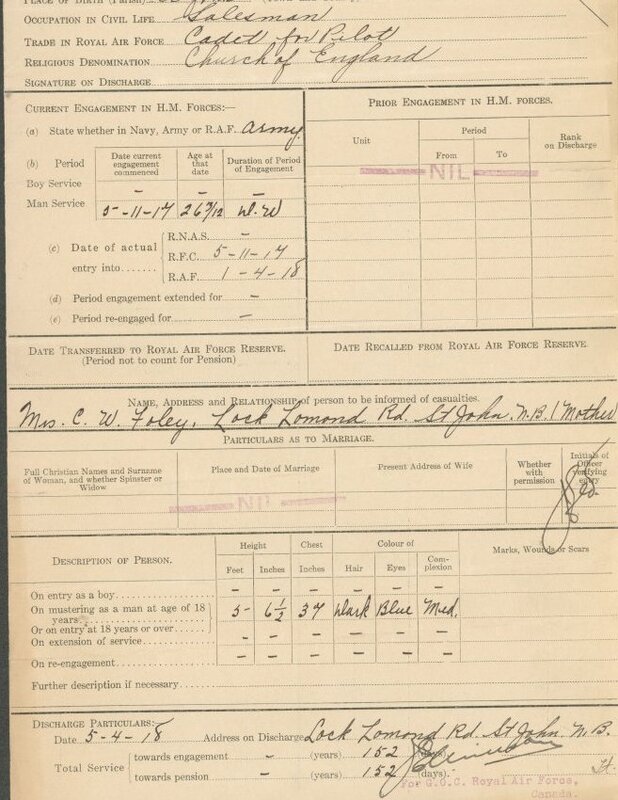 PLACE OF BIRTH (Parish)
OCCUPATION IN CIVIL LIFE Salesman
TRADE IN ROYAL AIR FORCE Cadet for Pilot
RELIGIOUS DENOMINATION Church of England
SIGNATURE ON DISCHARGE
CURRENT ENGAGEMENT IN H.M. FORCES:—
(a) State whether in Navy, Army or R.A.F. Army
(b) Period
Date current engagement commenced
Age at that date
Duration of Period of Engagement
Boy Service — — —
Man Service 5-11-17 26 7/12 D.W
(c) Date of actual entry into......
R.N.A.S. —
R.F.C. 5-11-17
R.A.F. 1-4-18
(d) Period engagement extended for —
(e) Period re-engaged for —
PRIOR ENGAGEMENT IN H.M. FORCES.
Unit
Period
From To
Rank on Discharge
NIL
DATE TRANSFERRED TO ROYAL AIR FORCE RESERVE.
(Period not to count for Pension)
DATE RECALLED FROM ROYAL AIR FORCE RESERVE.
NAME, ADDRESS AND RELATIONSHIP of person to be informed of casualties.
Mrs. C. W. Foley, Lock Lomond Rd. St John. N.B. (Mother
PARTICULARS AS TO MARRIAGE.
Full Christian Names and Surname of Woman, and whether Spinster or Widow
Place and Date of Marriage
Present Address of Wife
Whether with permission
Initials of Officer verifying entry
NIL
DESCRIPTION OF PERSON.
Height Chest Colour of
Feet Inches Inches Hair Eyes Complexion
Marks, Wounds or Scars
On entry as a boy — — — — — —
On mustering as a man at age of 18 years
Or on entry at 18 years or over
5- 6½ 37 Dark Blue Med.
On extension of service — — — — — —
On re-engagement — — — — — —
Further description if necessary
DISCHARGE PARTICULARS:
Date 5-4-18 Address on Discharge Lock Lomond Rd. St John N.B.
Total Service
towards engagement — (years) 152 (days).
towards pension — (years) 152 (days).
For G.O.C. Royal Air Force,
Canada.